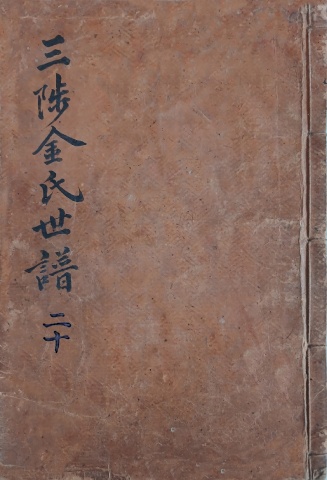 三陟金氏世譜 二十